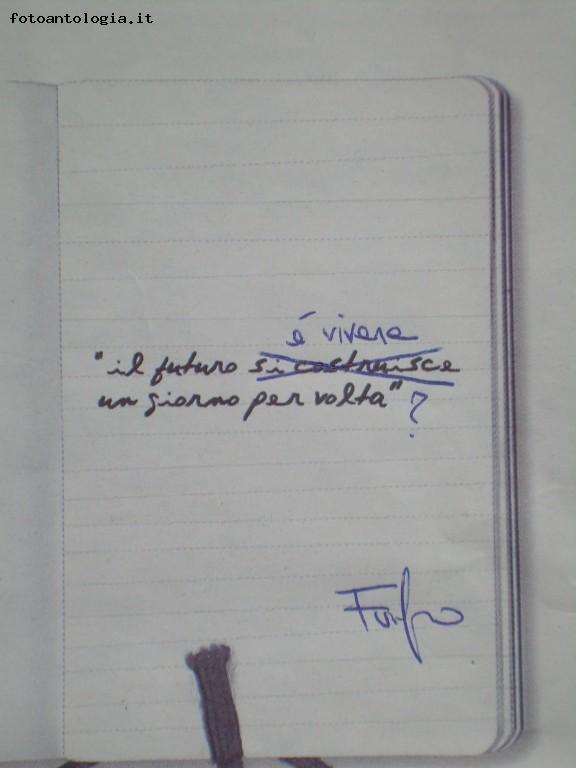 fotoantologia.it
é vivere
"il futuro si costruisce
un giorno per volta"?